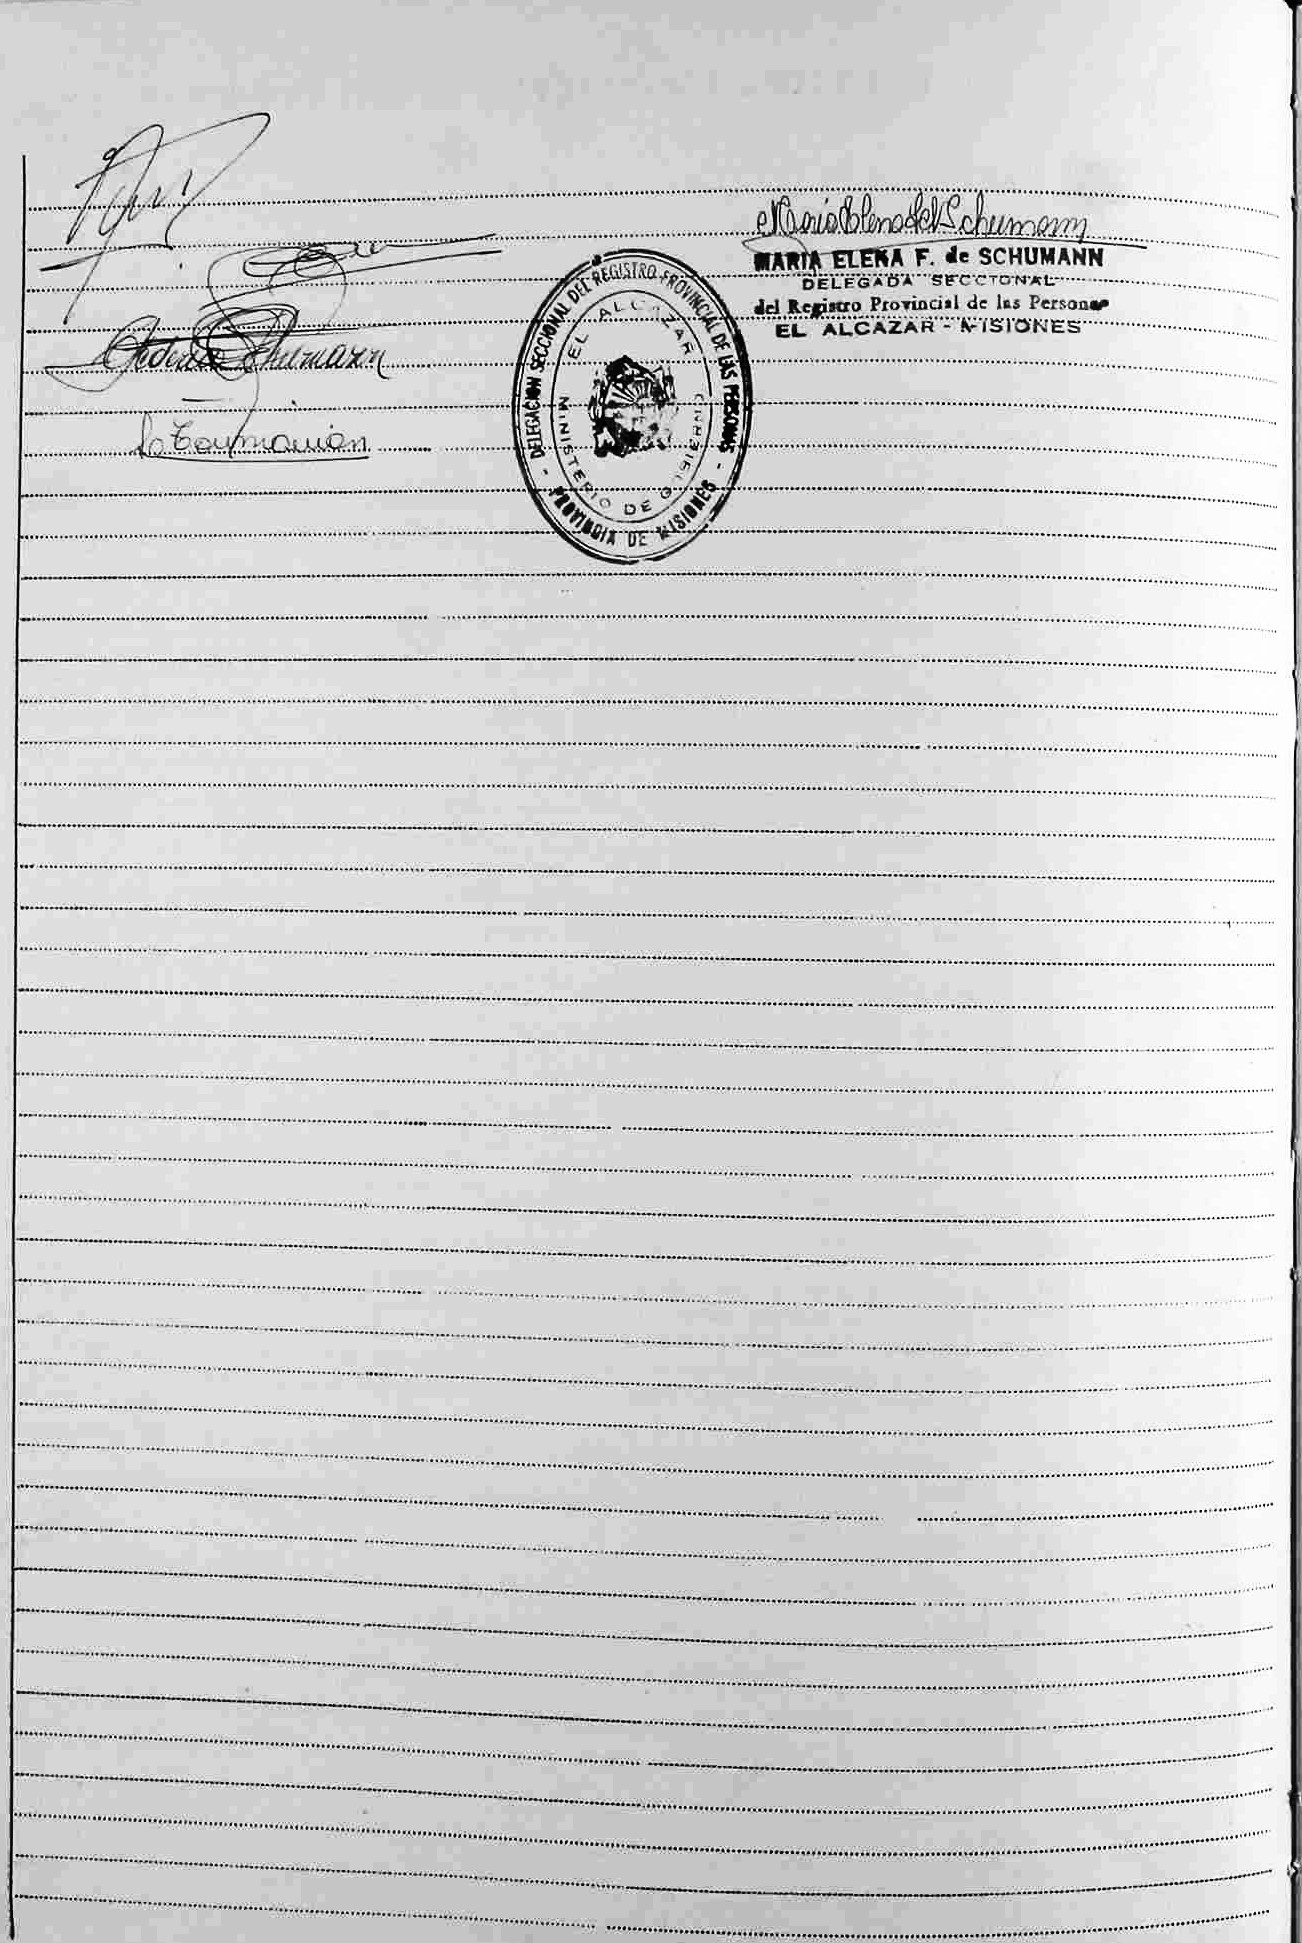 Maria Elena F de Schumann
MARIA ELENA F. de SCHUMANN
DELEGADA SECCIONAL
del Registro Provincial de las Personas
EL ALCAZAR - MISIONES
DELEGACION SECCIONAL DEL REGISTRO PROVINCIAL DE LAS PERSONAS
- PROVINCIA DE MISIONES -
EL ALCAZAR
MINISTERIO DE GOBIERNO
Schumann